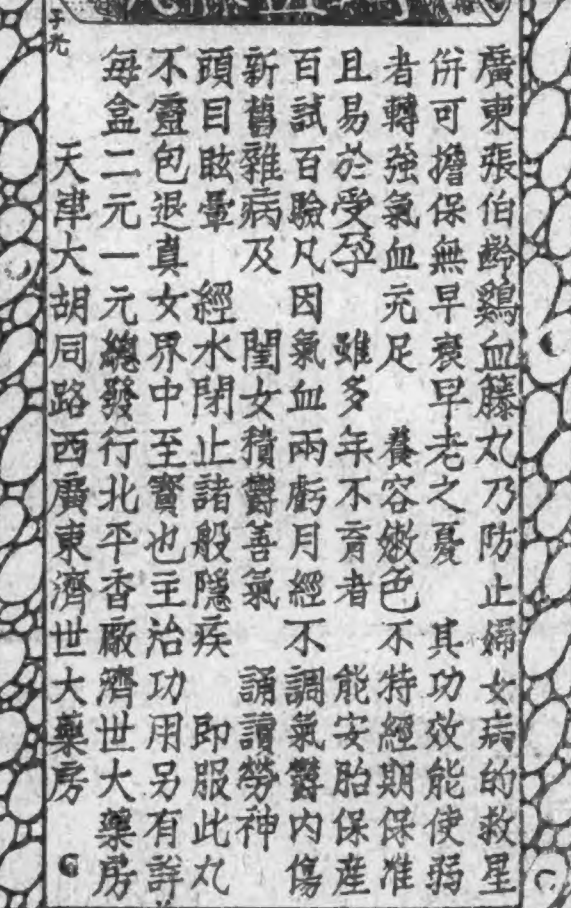 廣東張伯齡鷄血藤丸乃防止婦女病的救星
併可擔保無早衰早老之憂　其功效能使弱
者轉強氣血充足　養容嫩色不特經期保准
且易於受孕　雖多年不育者　能安胎保產
百試百驗凡因氣血兩虧月經不調氣鬱內傷
新舊雜病及　閨女積鬱善氣　誦讀勞神
頭目眩暈　經水閉止諸般隱疾　即服此丸
不靈包退真女界中至寶也主治功用另有詳
每盒二元一元總發行北平香廠濟世大藥房
天津大胡同路西廣東濟世大藥房